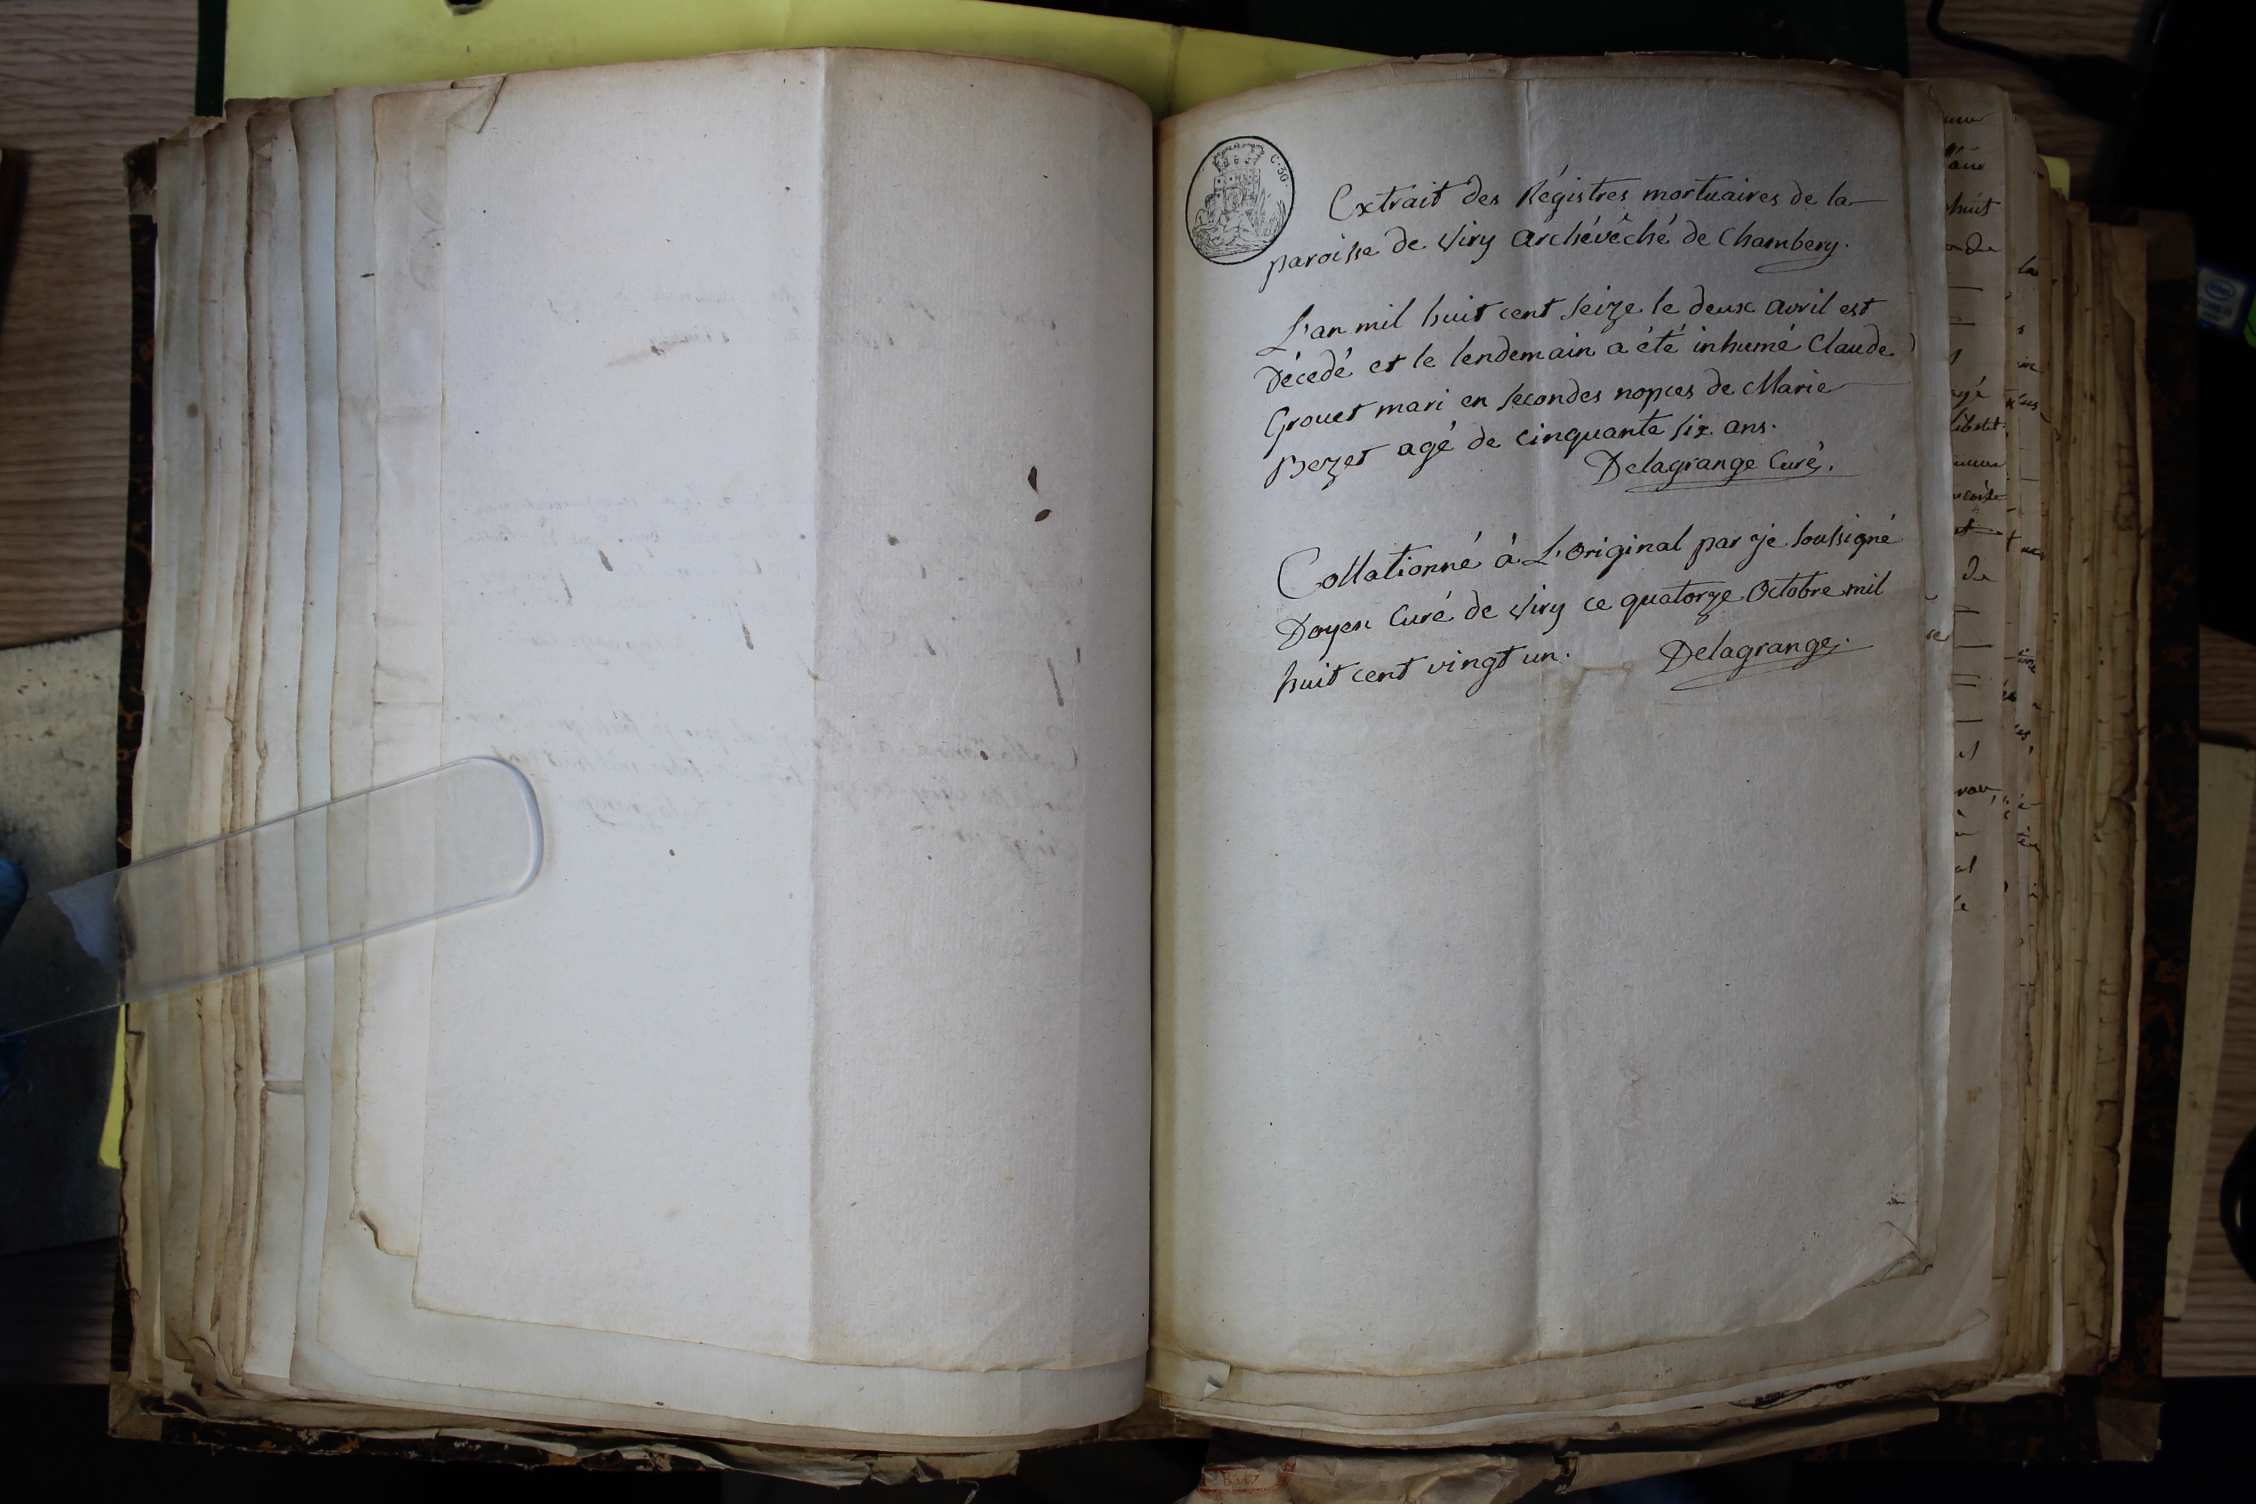 C. 30.
Extrait des Régistres mortuaires de la
paroisse de Viry archévêché de Chambery.
L'an mil huit cent seize le deux avril est
décedé et le lendemain a été inhumé Claude
Grouet mari en secondes nopces de Marie
Pezet agé de cinquante six ans.
Delagrange Curé.
Collationné à L'original par je soussigné
Doyen Curé de Viry ce quatorze Octobre mil
huit cent vingt un. Delagrange.